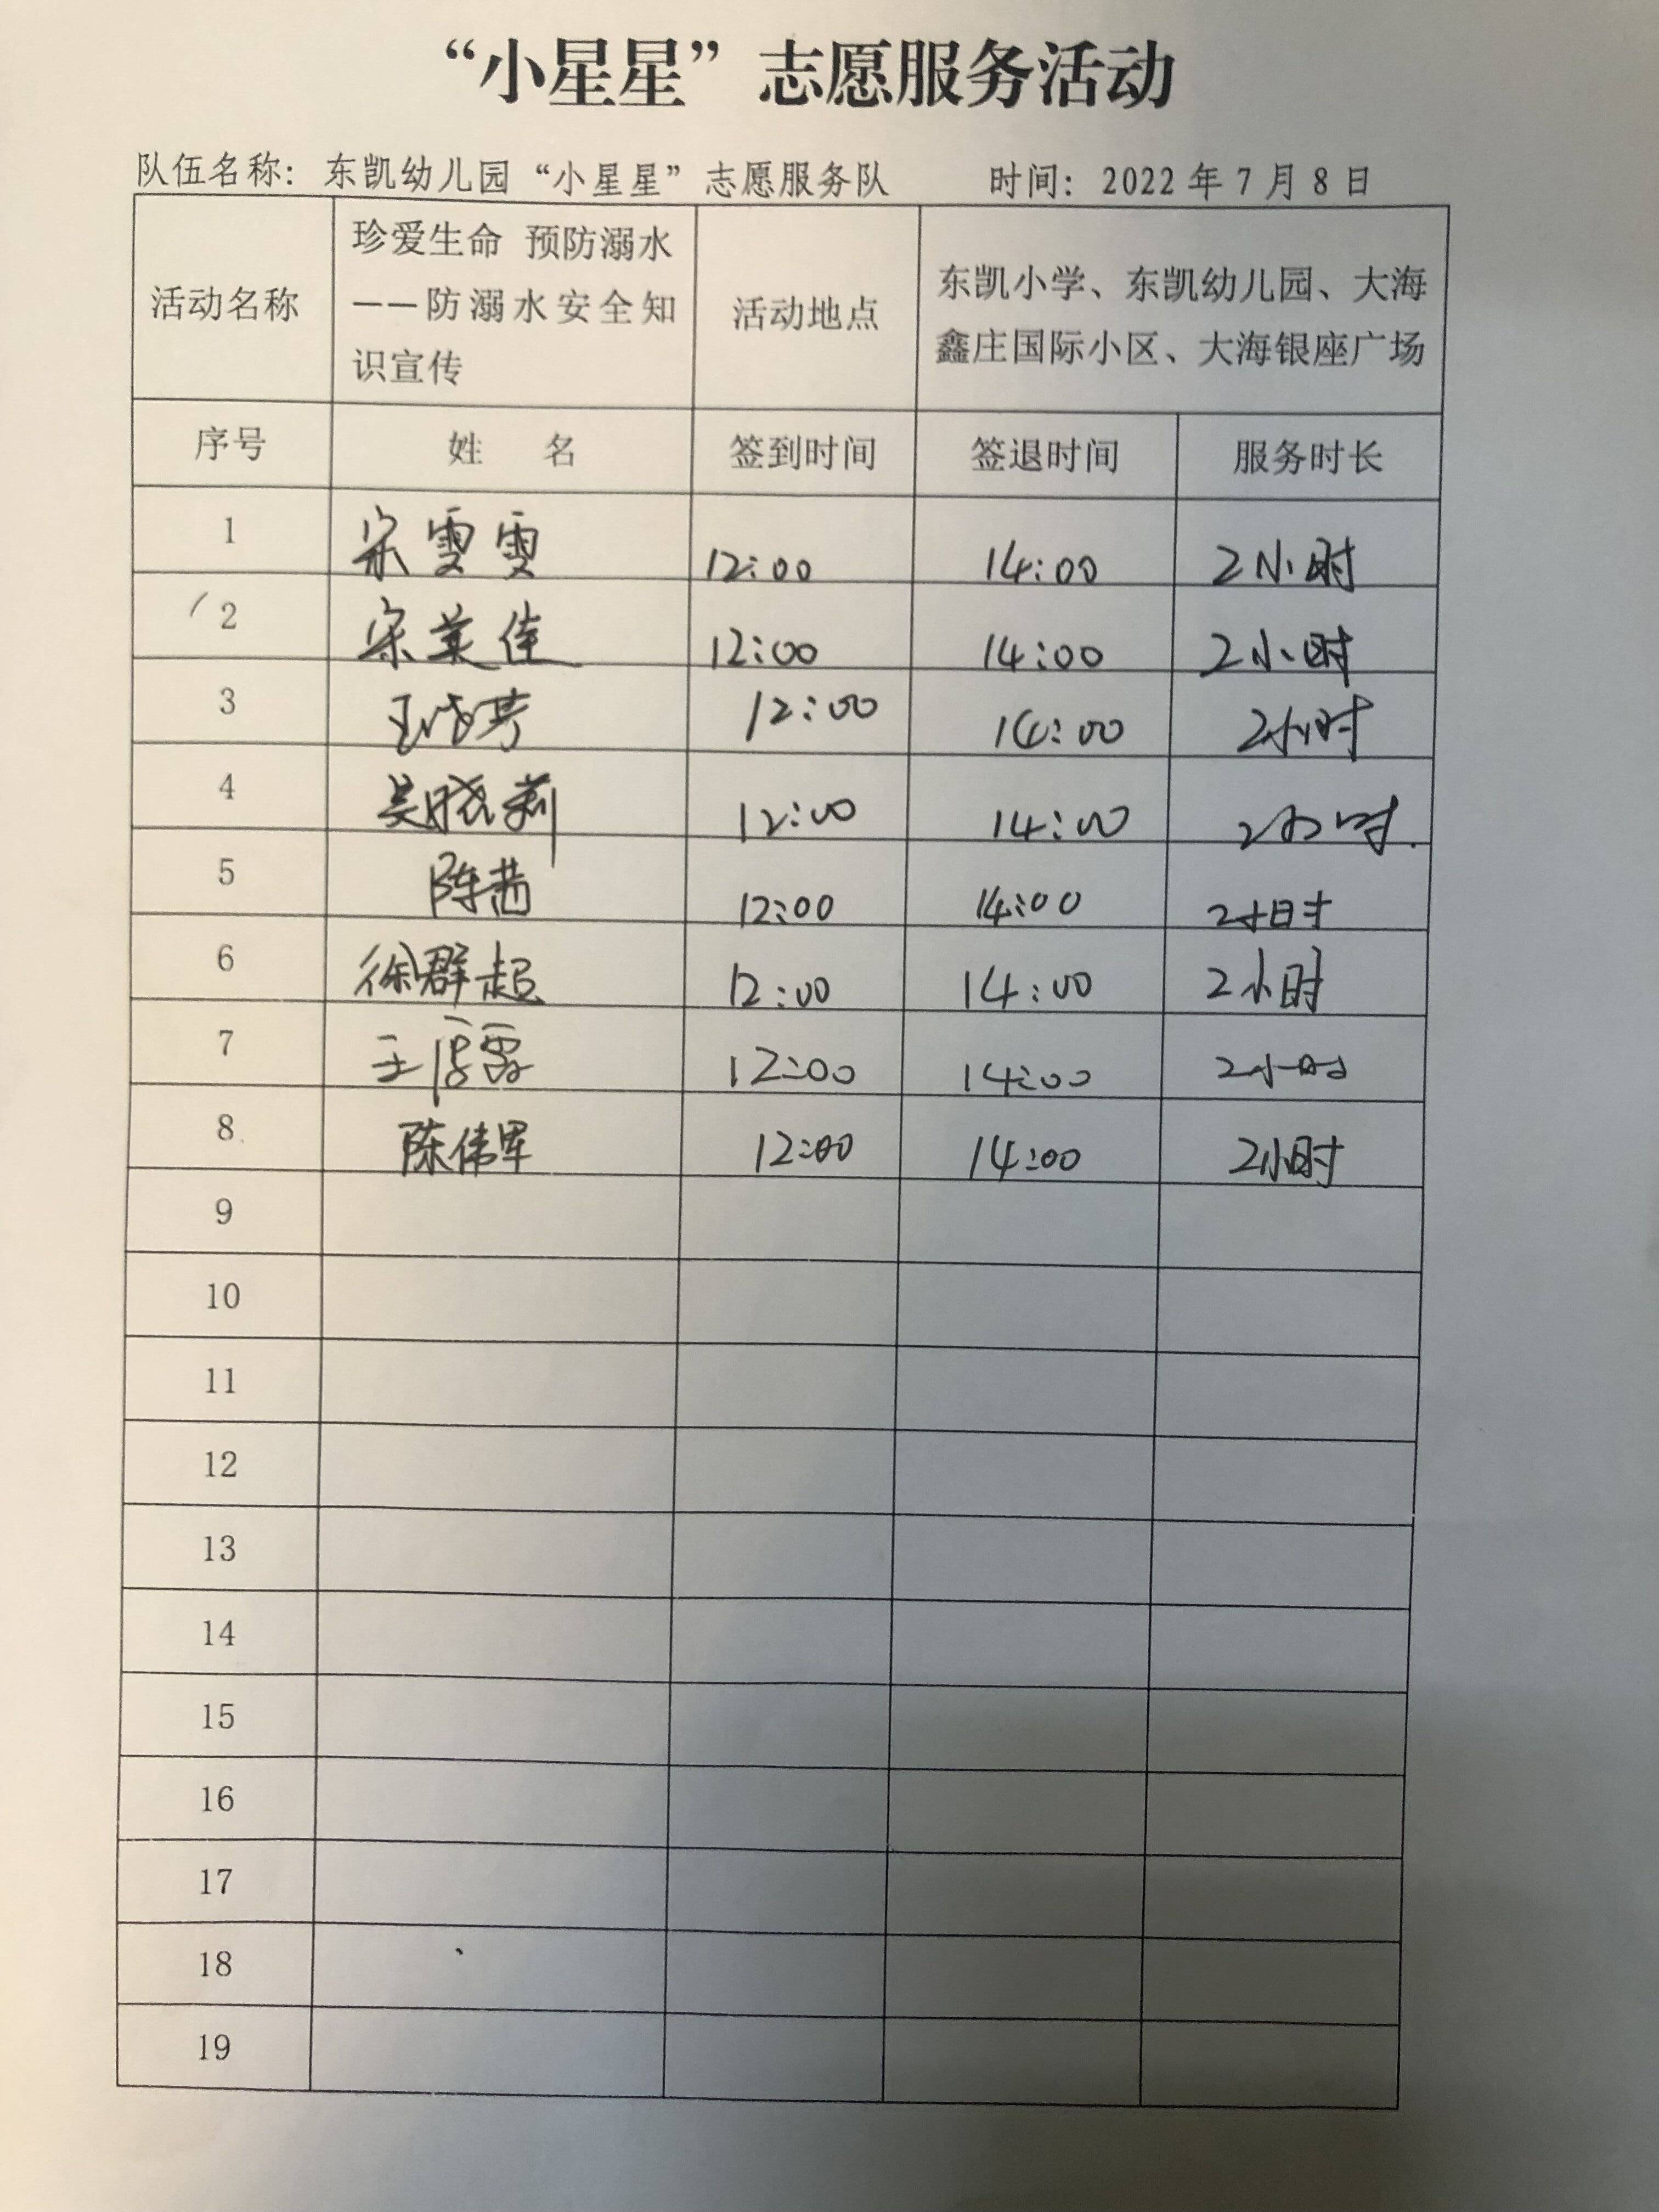 “小星星”志愿服务活动
队伍名称：东凯幼儿园“小星星”志愿服务队 时间：2022年7月8日
活动名称 珍爱生命 预防溺水——防溺水安全知识宣传 活动地点 东凯小学、东凯幼儿园、大海鑫庄国际小区、大海银座广场
序号 姓 名 签到时间 签退时间 服务时长
1 宋雯雯 12:00 14:00 2小时
2 宋美佳 12:00 14:00 2小时
3 王 12:00 14:00 2小时
4 吴晓莉 12:00 14:00 2小时
5 陈茜 12:00 14:00 2小时
6 徐群超 12:00 14:00 2小时
7 王 12:00 14:00 2小时
8 陈伟军 12:00 14:00 2小时
9
10
11
12
13
14
15
16
17
18
19